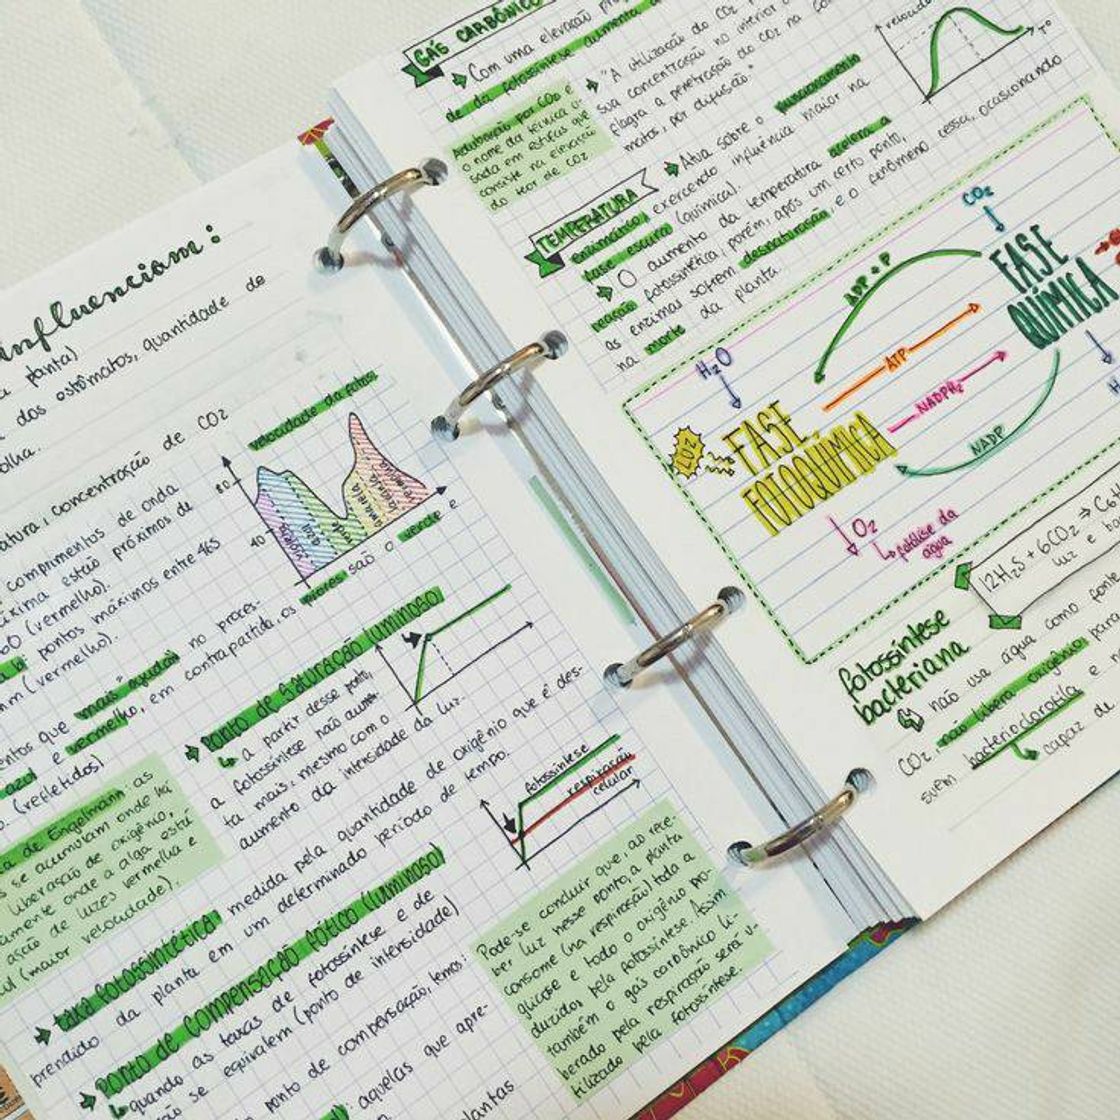 influenciam:
planta)
dos estômatos, quantidade de
olha.
concentração de CO2
comprimentos de onda
estão próximos de
(vermelho).
pontos máximos entre 465
nm (vermelho).
que "mais" ajudam no proces-
azul e vermelho, em contrapartida, os piores são o verde e
(refletidos)
velocidade da fotos.
80
40
violeta
azul
verde
amarelo
laranja
vermelho
ponto de saturação luminoso
a partir desse ponto,
a fotossíntese não aumen-
ta mais, mesmo com o
aumento da intensidade da luz.
de Engelmann: as
se acumulam onde há
liberação de oxigênio,
onde a alga está
ação de luzes vermelha e
(maior velocidade).
taxa fotossintética: medida pela quantidade de oxigênio que é des-
prendido da planta em um determinado período de tempo.
fotossíntese
respiração
celular
ponto de compensação fótico (luminoso)
quando as taxas de fotossíntese e de
se equivalem (ponto de intensidade)
ponto de compensação, temos:
aquelas que apre-
plantas
Pode-se concluir que, ao rece-
ber luz nesse ponto, a planta
consome (na respiração) toda a
glicose e todo o oxigênio pro-
duzidos pela fotossíntese. Assim,
também o gás carbônico li-
berado pela respiração será u-
tilizado pela fotossíntese.
GÁS CARBÔNICO
Com uma elevação
de da fotossíntese aumenta
Adubação por CO2 é
o nome da técnica u-
sada em estufas que
consiste na elevação
do teor de CO2
"A utilização do CO2 no interior
sua concentração no
flagra a penetração do CO2 na
por difusão."
velocidade
Tº
TEMPERATURA
Atua sobre o funcionamento
enzimático, exercendo influência maior na
fase escura (química).
O aumento da temperatura acelera a
reação fotossintética, porém, após um certo ponto,
as enzimas sofrem desnaturação, e o fenômeno cessa, ocasionando
na morte da planta.
CO2
FASE
QUÍMICA
ADP + P
ATP
NADPH2
NADP
H2O
LUZ
FASE
FOTOQUÍMICA
O2
fotólise da
água
12H2S + 6CO2 → C6
luz e
fotossíntese
bacteriana
não usa água como fonte
CO2, não libera oxigênio, para
suem bacterioclorofila e
capaz de